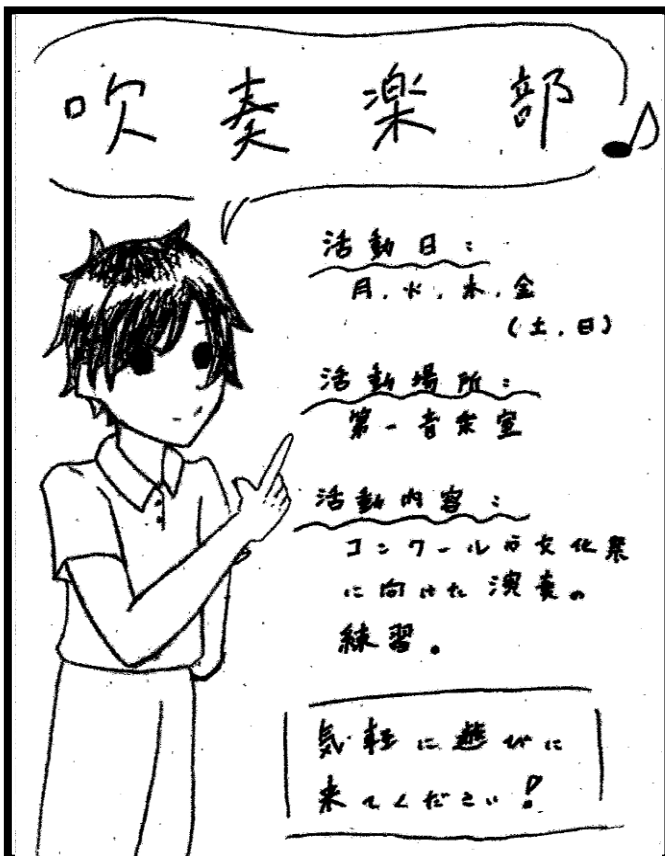 吹奏楽部
活動日:
月,火,木,金
(土,日)
活動場所:
第一音楽室
活動内容:
コンクールや文化祭
に向けた演奏の
練習。
気軽に遊びに
来てください!